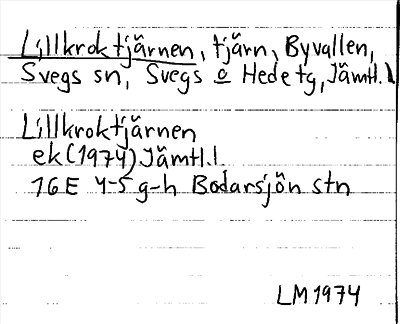 Lillkroktjärnen, tjärn, Byvallen,
Svegs sn, Svegs o Hede tg, Jämtl.l
Lillkroktjärnen
ek (1974) Jämtl.l
16E 4-5 g-h Bodarsjön stn
LM 1974